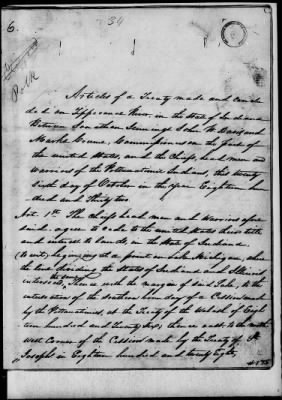 6.
34
Polk
Articles of a Treaty made and conclu
ded on Tippecanoe River, in the State of Indiana
Between Jonathan Jennings John W. Davis and
Marks Crume, Commissioners on the part of
the united States, and the Chiefs, head men and
Warriors of the Pottawatimie Indians, this twenty
Sixth day of October in the year Eighteen hun
dred and thirty two
Art. 1st The chiefs head men and warriors afore
said, agree to cede to the united States their title
and interest to lands in the State of Indiana.
(to wit) begining at a point on Lake Michigan, where
the line dividing the States of Indiana and Illinois
intersects the same, thence with the margin of said Lake, to the
intersection of the southern boundary of a Cession made
by the Pottawatimies, at the Treaty of the Wabash of Eigh
teen hundred and twenty six; thence east, to the north
west corner of the Cession made by the Treaty of St
Joseph's in Eighteen hundred and twenty eight,